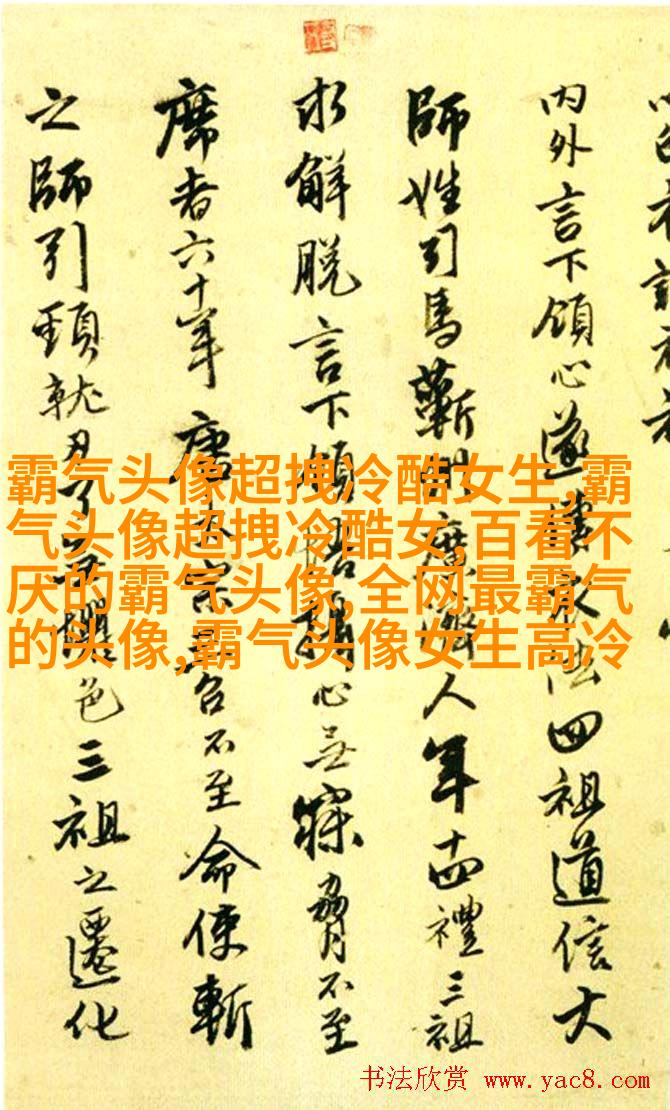 内外言下領心遂傳衣法四祖道信大
師姓司馬蘄州廣濟人年十四禮三祖
求解脫言下領悟心無寐脅不至
席者六十年唐太宗召不至命使斬
之師引頸就刃了無懼色三祖之遷化
霸气头像超拽冷酷女生,霸
气头像超拽冷酷女,百看不
厌的霸气头像,全网最霸气
的头像,霸气头像女生高冷
书法欣赏 www.yac8.com